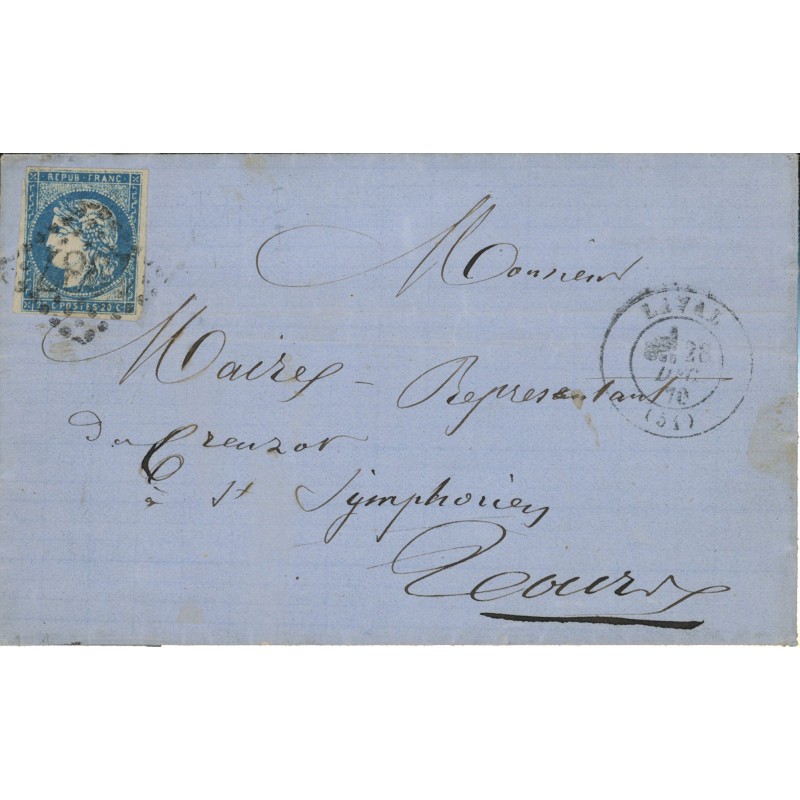 REPUB·FRANC
C·POSTES·20·C
LAVAL
28
DEC
70
(51)
Monsieur
Maires - Representant
du Creuzot
à St Symphorien
Tours